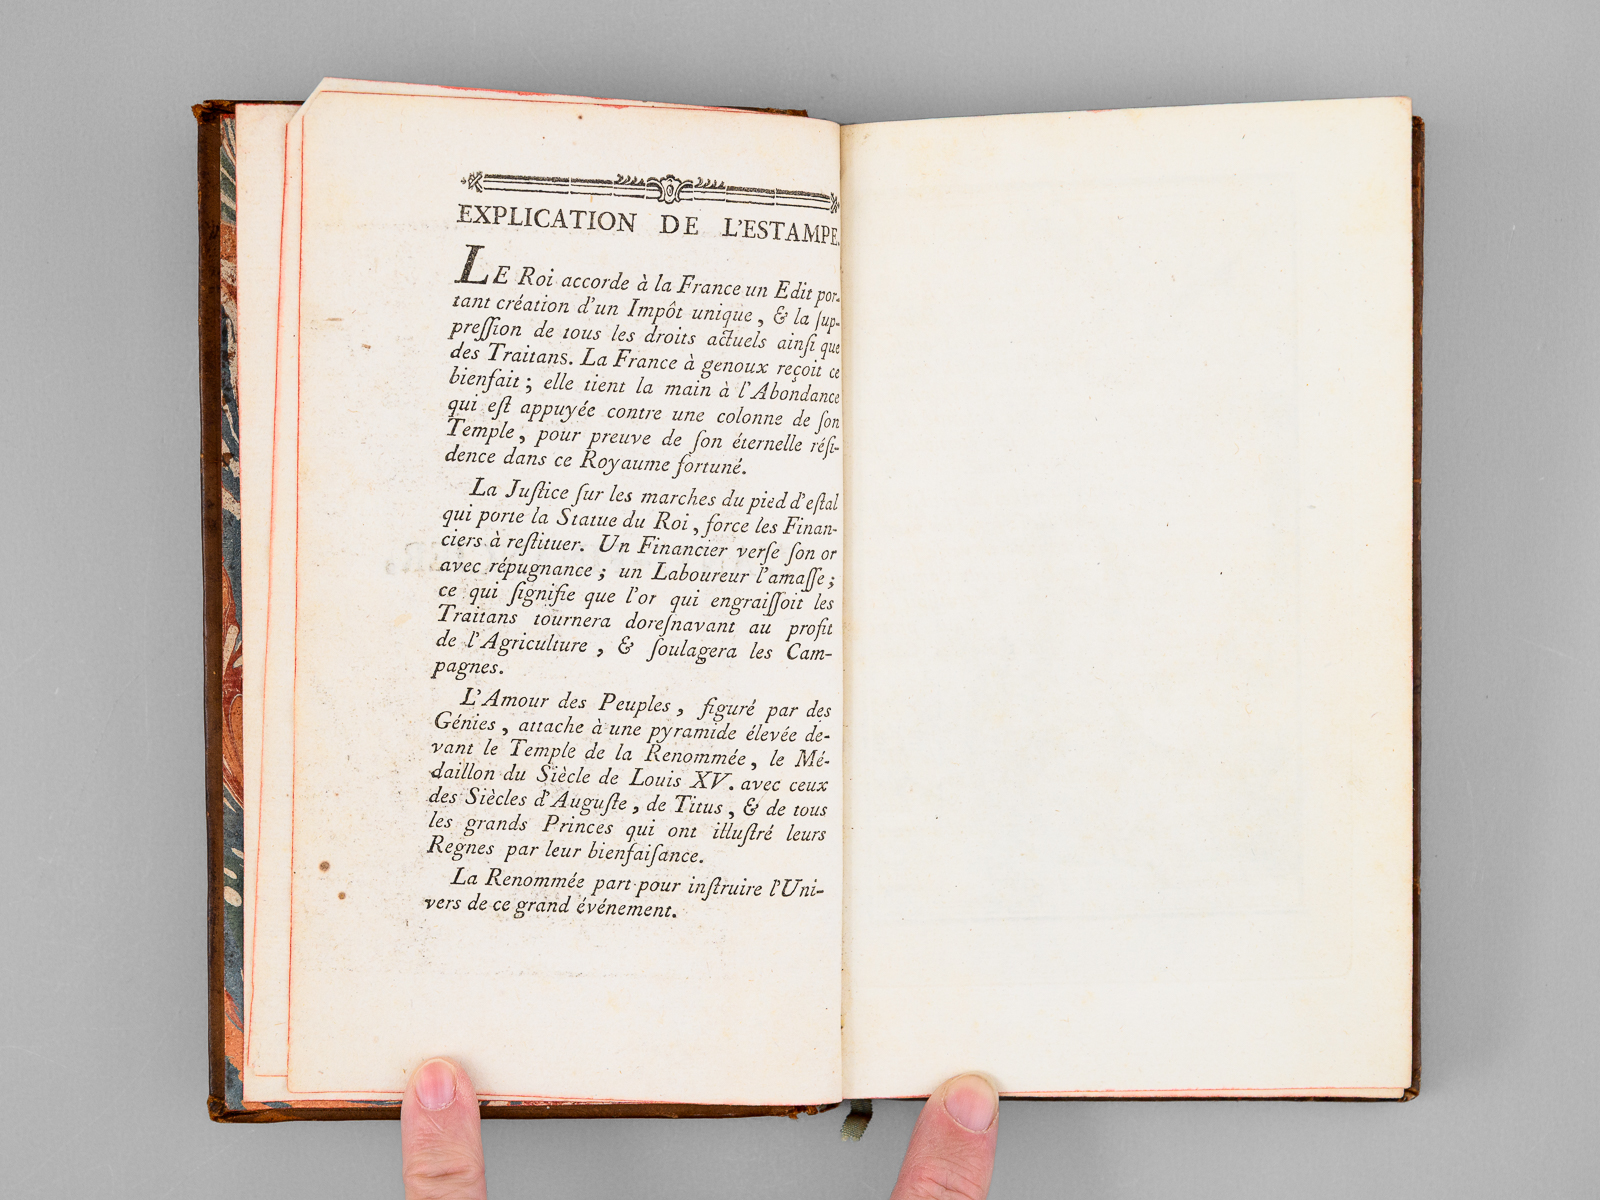 EXPLICATION DE L'ESTAMPE.
LE Roi accorde à la France un Edit por-
tant création d'un Impôt unique, & la ſup-
preſſion de tous les droits actuels ainſi que
des Traitans. La France à genoux reçoit ce
bienfait; elle tient la main à l'Abondance
qui eſt appuyée contre une colonne de ſon
Temple, pour preuve de ſon éternelle réſi-
dence dans ce Royaume fortuné.
La Juſtice ſur les marches du pied d'eſtal
qui porte la Statue du Roi, force les Finan-
ciers à reſtituer. Un Financier verſe ſon or
avec répugnance; un Laboureur l'amaſſe;
ce qui ſignifie que l'or qui engraiſſoit les
Traitans tournera doreſnavant au profit
de l'Agriculture, & ſoulagera les Cam-
pagnes.
L'Amour des Peuples, figuré par des
Génies, attache à une pyramide élevée de-
vant le Temple de la Renommée, le Mé-
daillon du Siècle de Louis XV. avec ceux
des Siècles d'Auguſte, de Titus, & de tous
les grands Princes qui ont illuſtré leurs
Regnes par leur bienfaiſance.
La Renommée part pour inſtruire l'Uni-
vers de ce grand événement.